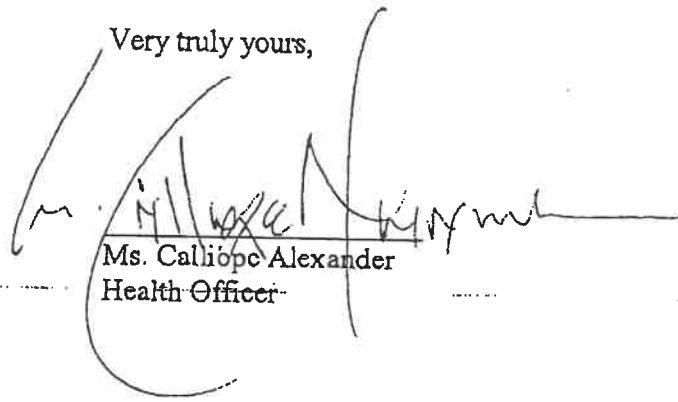 Very truly yours,
Ms. Calliope Alexander
Health Officer